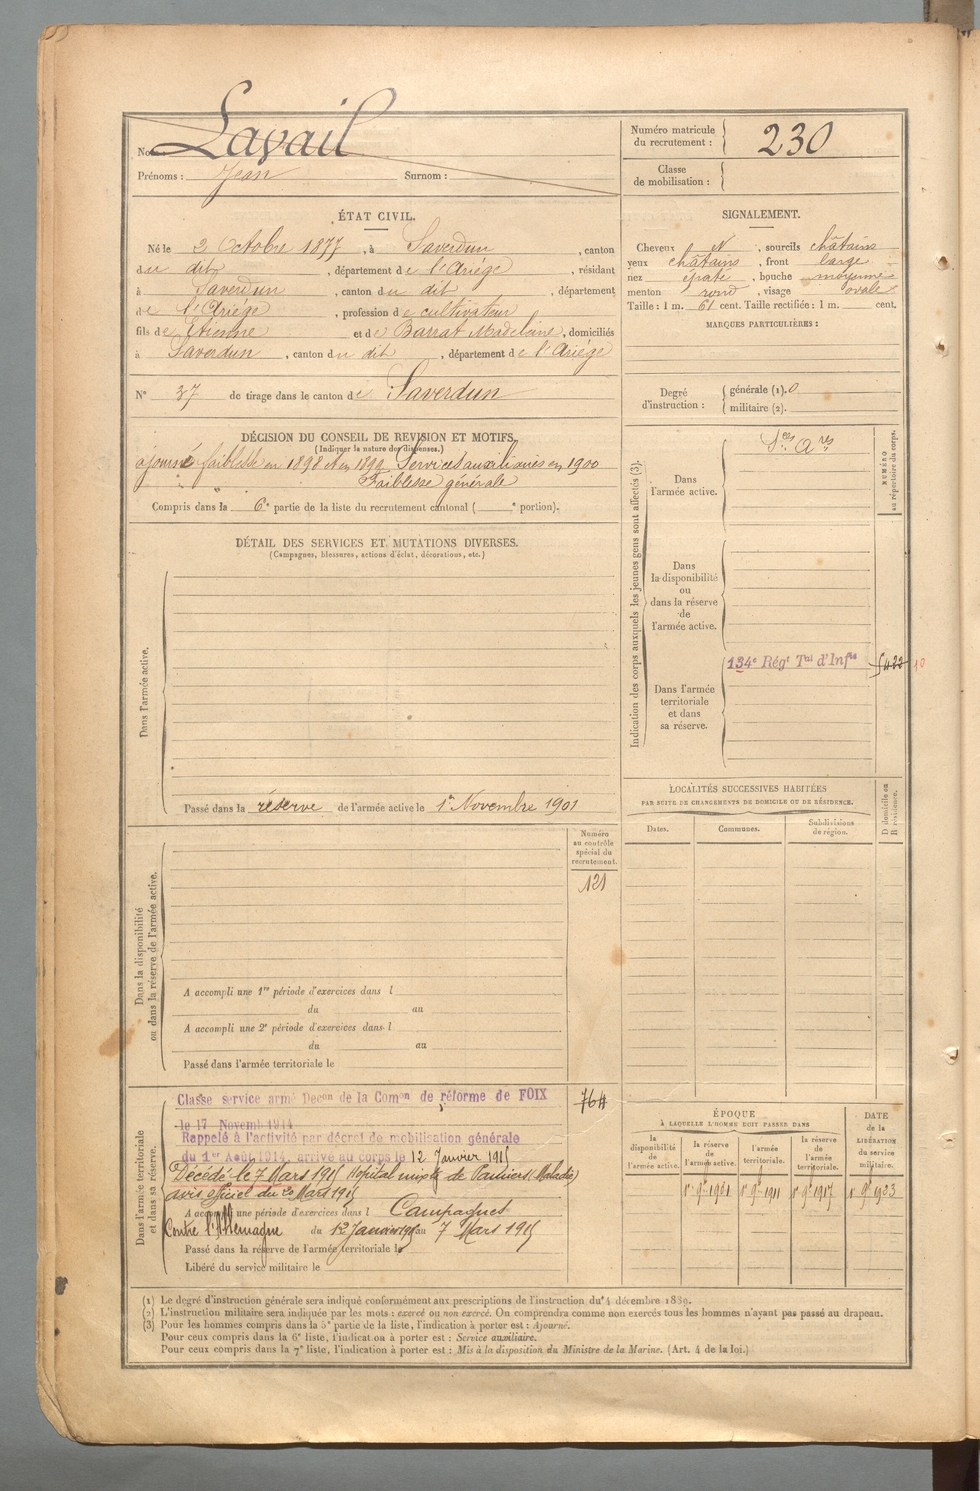 Nom : Lavail
Prénoms : Jean Surnom :
Numéro matricule du recrutement : 230
Classe de mobilisation :
ÉTAT CIVIL.
Né le 2 Octobre 1877, à Saverdun, canton
du dit, département de l'Ariége, résidant
à Saverdun, canton du dit, département
de l'Ariége, profession de cultivateur
fils de Etienne et de Barrat Madeleine, domiciliés
à Saverdun, canton du dit, département de l'Ariége
N° 37 de tirage dans le canton de Saverdun
SIGNALEMENT.
Cheveux N, sourcils châtains
yeux châtains, front large
nez épaté, bouche moyenne
menton rond, visage ovale
Taille : 1 m. 61 cent. Taille rectifiée : 1 m. cent.
MARQUES PARTICULIÈRES :
Degré d'instruction : générale (1). 0
militaire (2).
DÉCISION DU CONSEIL DE REVISION ET MOTIFS.
(Indiquer la nature des dispenses.)
ajourné faiblesse en 1898 et en 1899. Services auxiliaires en 1900
Faiblesse générale
Compris dans la 6e partie de la liste du recrutement cantonal ( e portion).
DÉTAIL DES SERVICES ET MUTATIONS DIVERSES.
(Campagnes, blessures, actions d'éclat, décorations, etc.)
Dans l'armée active.
Passé dans la réserve de l'armée active le 1er Novembre 1901
Indication des corps auxquels les jeunes gens sont affectés (3).
NUMÉRO au répertoire du corps.
Dans l'armée active.
Ses Ares
Dans la disponibilité ou dans la réserve de l'armée active.
Dans l'armée territoriale et dans sa réserve.
134e Régt Tal d'Infie
LOCALITÉS SUCCESSIVES HABITÉES
PAR SUITE DE CHANGEMENTS DE DOMICILE OU DE RÉSIDENCE.
Dates. Communes. Subdivisions de région.
D domicile ou R résidence.
Numéro au contrôle spécial du recrutement.
121
Dans la disponibilité ou dans la réserve de l'armée active.
A accompli une 1re période d'exercices dans l
du au
A accompli une 2e période d'exercices dans l
du au
Passé dans l'armée territoriale le
Dans l'armée territoriale et dans sa réserve.
764
Classé service armé Décon de la Comon de réforme de FOIX
le 17 Novemb 1914
Rappelé à l'activité par décret de mobilisation générale
du 1er Août 1914, arrivé au corps le 12 Janvier 1915
Décédé le 7 Mars 1915 Hopital mixte de Pamiers (Maladie)
avis officiel du 20 Mars 1915
A accompli une période d'exercices dans l Campagnes
Contre l'Allemagne du 12 Janvier 1915 au 7 Mars 1915
Passé dans la réserve de l'armée territoriale le
Libéré du service militaire le
ÉPOQUE
À LAQUELLE L'HOMME DOIT PASSER DANS
la disponibilité de l'armée active.
la réserve de l'armée active.
l'armée territoriale.
la réserve de l'armée territoriale.
DATE de la LIBÉRATION du service militaire.
1er 9bre 1901 1er 9bre 1911 1er 9bre 1917 1er 9bre 1923
(1) Le degré d'instruction générale sera indiqué conformément aux prescriptions de l'instruction du 4 décembre 1889.
(2) L'instruction militaire sera indiquée par les mots : exercé ou non exercé. On comprendra comme non exercés tous les hommes n'ayant pas passé au drapeau.
(3) Pour les hommes compris dans la 5e partie de la liste, l'indication à porter est : Ajourné.
Pour ceux compris dans la 6e liste, l'indication à porter est : Service auxiliaire.
Pour ceux compris dans la 7e liste, l'indication à porter est : Mis à la disposition du Ministre de la Marine. (Art. 4 de la loi.)